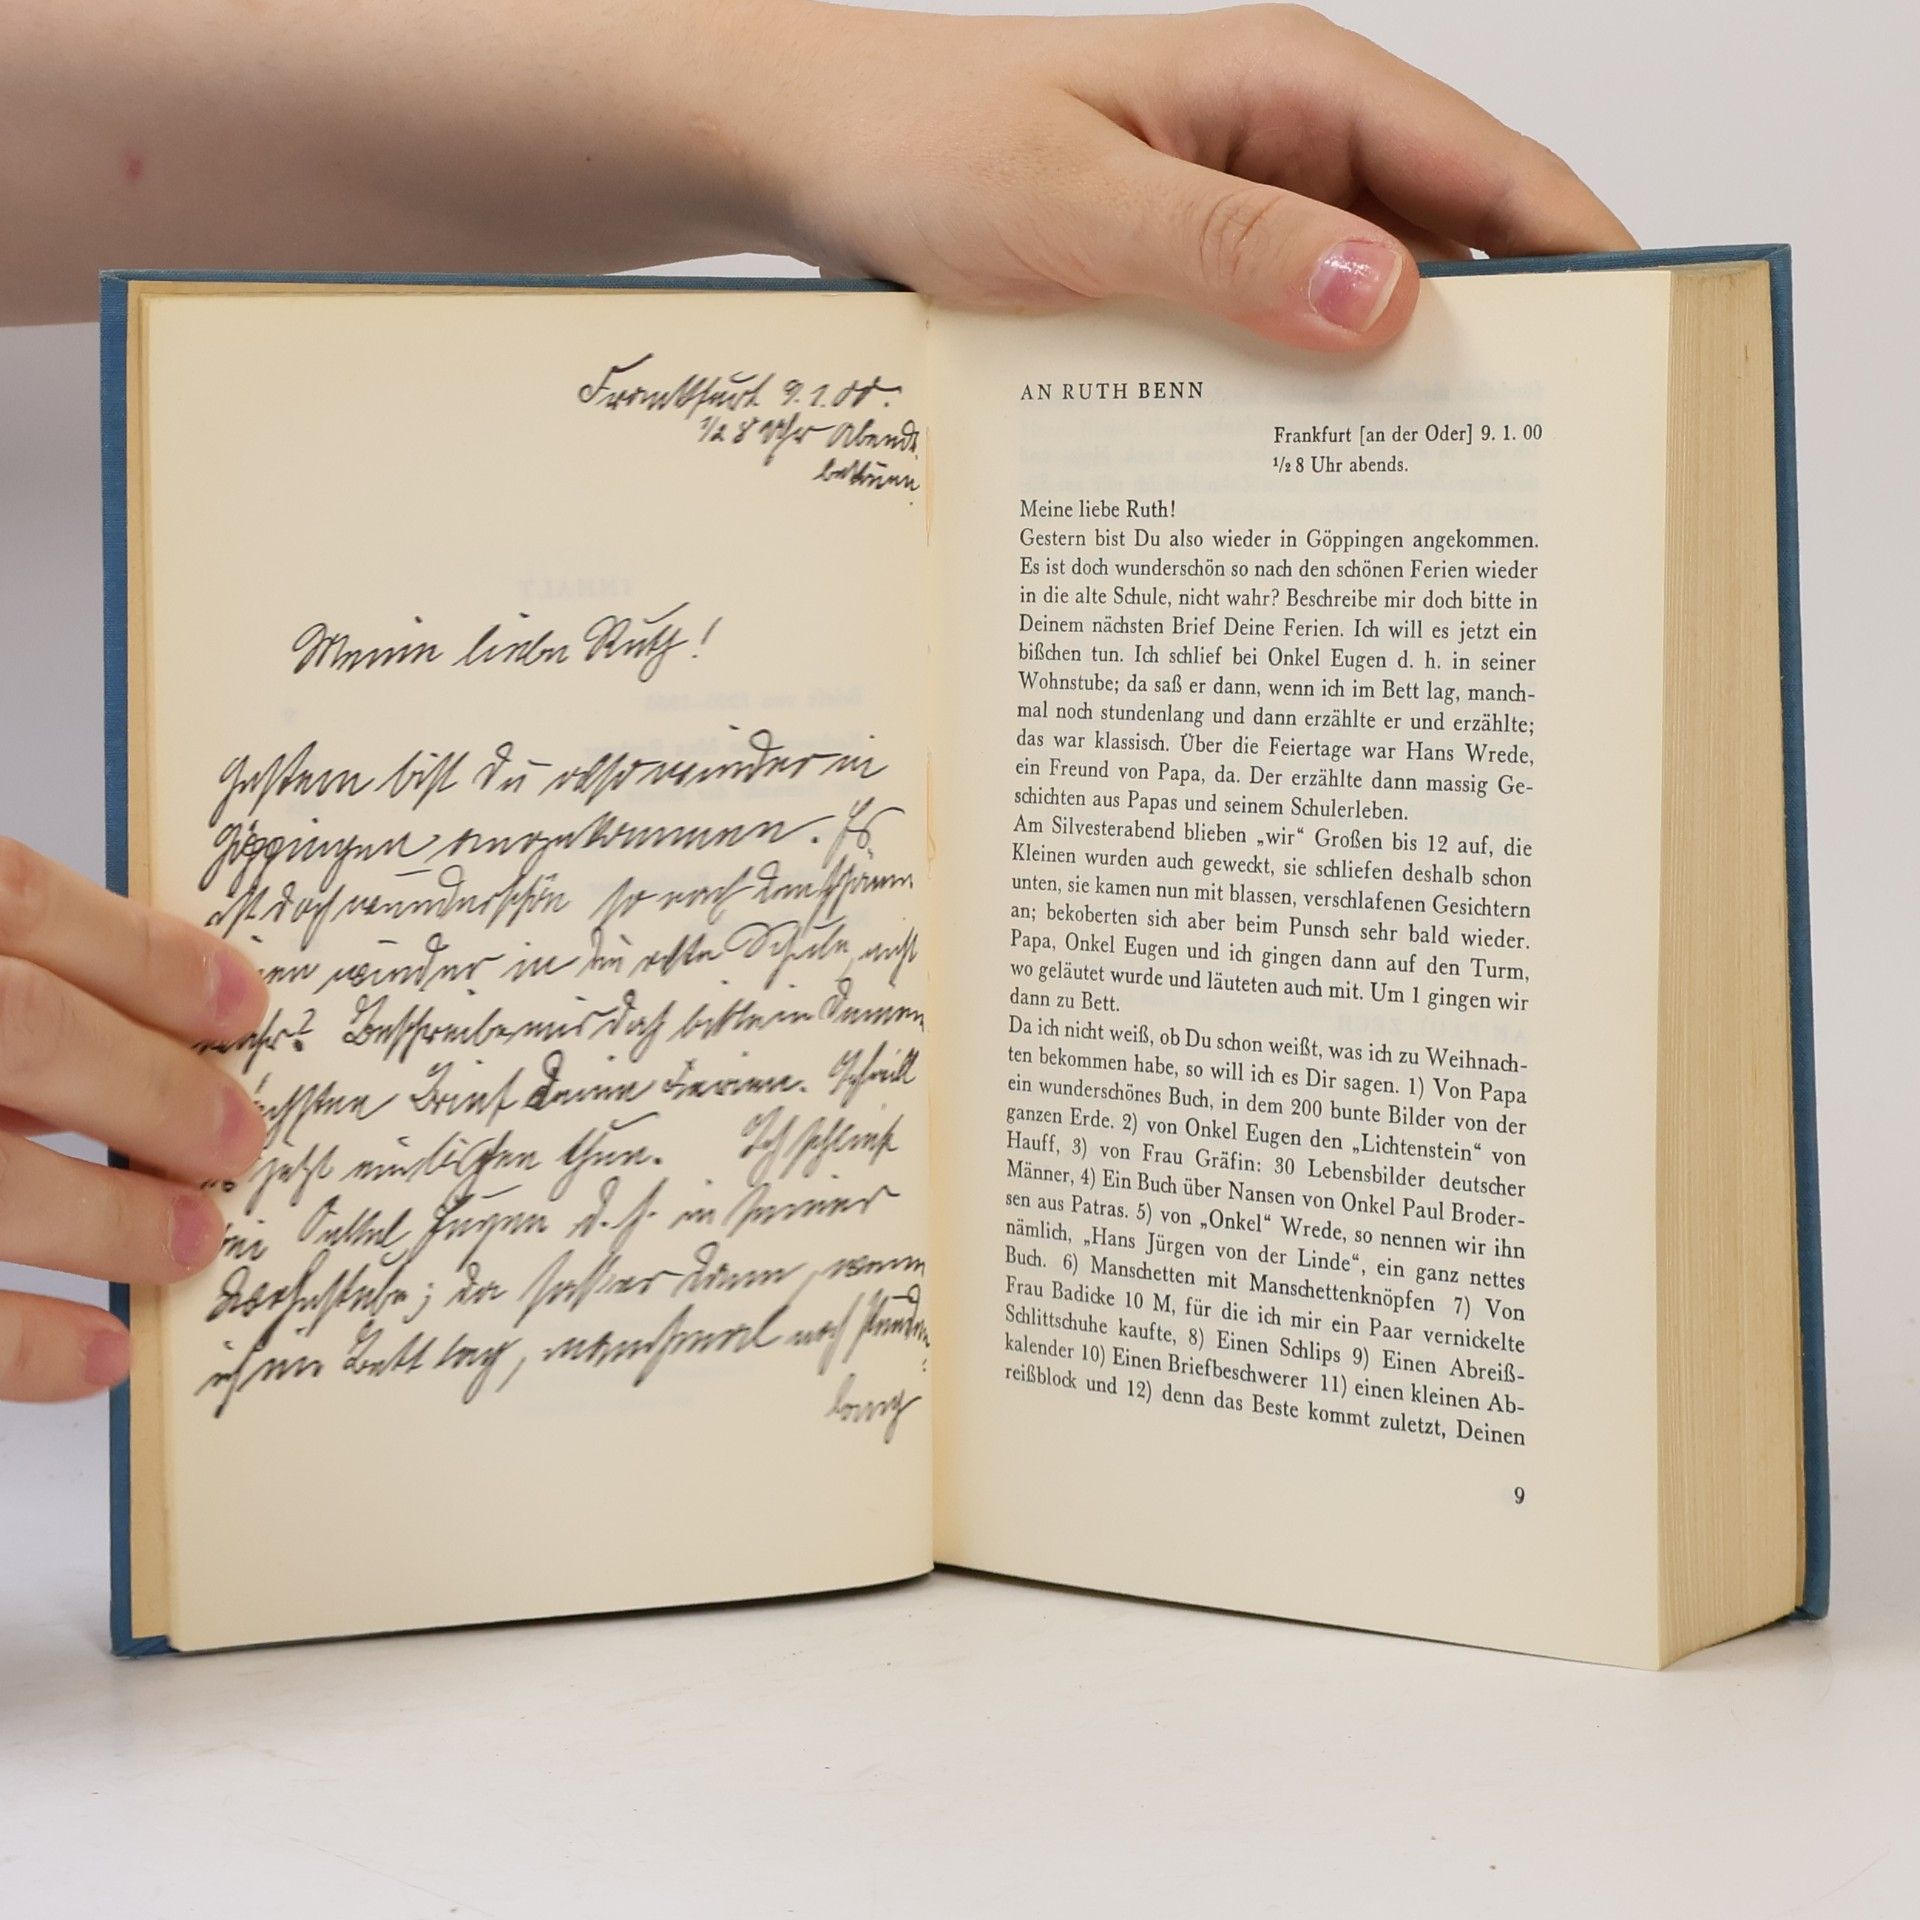 Frankfurt 9.1.00.
1/2 8 Uhr Abends.
Meine liebe Ruth!
Gestern bist Du also wieder in
Göppingen angekommen. Es
ist doch wunderschön so nach den schönen
wieder in die alte Schule, nicht
wahr? Beschreibe mir doch bitte in Deinem
nächsten Brief Deine Ferien. Ich will
es jetzt ein bischen thun. Ich schlief
bei Onkel Eugen d. h. in seiner
Wohnstube; da saß er dann, wenn
ich im Bett lag, manchmal noch stunden-
lang
AN RUTH BENN
Frankfurt [an der Oder] 9. 1. 00
1/2 8 Uhr abends.
Meine liebe Ruth!
Gestern bist Du also wieder in Göppingen angekommen.
Es ist doch wunderschön so nach den schönen Ferien wieder
in die alte Schule, nicht wahr? Beschreibe mir doch bitte in
Deinem nächsten Brief Deine Ferien. Ich will es jetzt ein
bißchen tun. Ich schlief bei Onkel Eugen d. h. in seiner
Wohnstube; da saß er dann, wenn ich im Bett lag, manch-
mal noch stundenlang und dann erzählte er und erzählte;
das war klassisch. Über die Feiertage war Hans Wrede,
ein Freund von Papa, da. Der erzählte dann massig Ge-
schichten aus Papas und seinem Schulerleben.
Am Silvesterabend blieben „wir“ Großen bis 12 auf, die
Kleinen wurden auch geweckt, sie schliefen deshalb schon
unten, sie kamen nun mit blassen, verschlafenen Gesichtern
an; bekoberten sich aber beim Punsch sehr bald wieder.
Papa, Onkel Eugen und ich gingen dann auf den Turm,
wo geläutet wurde und läuteten auch mit. Um 1 gingen wir
dann zu Bett.
Da ich nicht weiß, ob Du schon weißt, was ich zu Weihnach-
ten bekommen habe, so will ich es Dir sagen. 1) Von Papa
ein wunderschönes Buch, in dem 200 bunte Bilder von der
ganzen Erde. 2) von Onkel Eugen den „Lichtenstein“ von
Hauff, 3) von Frau Gräfin: 30 Lebensbilder deutscher
Männer, 4) Ein Buch über Nansen von Onkel Paul Broder-
sen aus Patras. 5) von „Onkel“ Wrede, so nennen wir ihn
nämlich, „Hans Jürgen von der Linde“, ein ganz nettes
Buch. 6) Manschetten mit Manschettenknöpfen 7) Von
Frau Badicke 10 M, für die ich mir ein Paar vernickelte
Schlittschuhe kaufte, 8) Einen Schlips 9) Einen Abreiß-
kalender 10) Einen Briefbeschwerer 11) einen kleinen Ab-
reißblock und 12) denn das Beste kommt zuletzt, Deinen
9